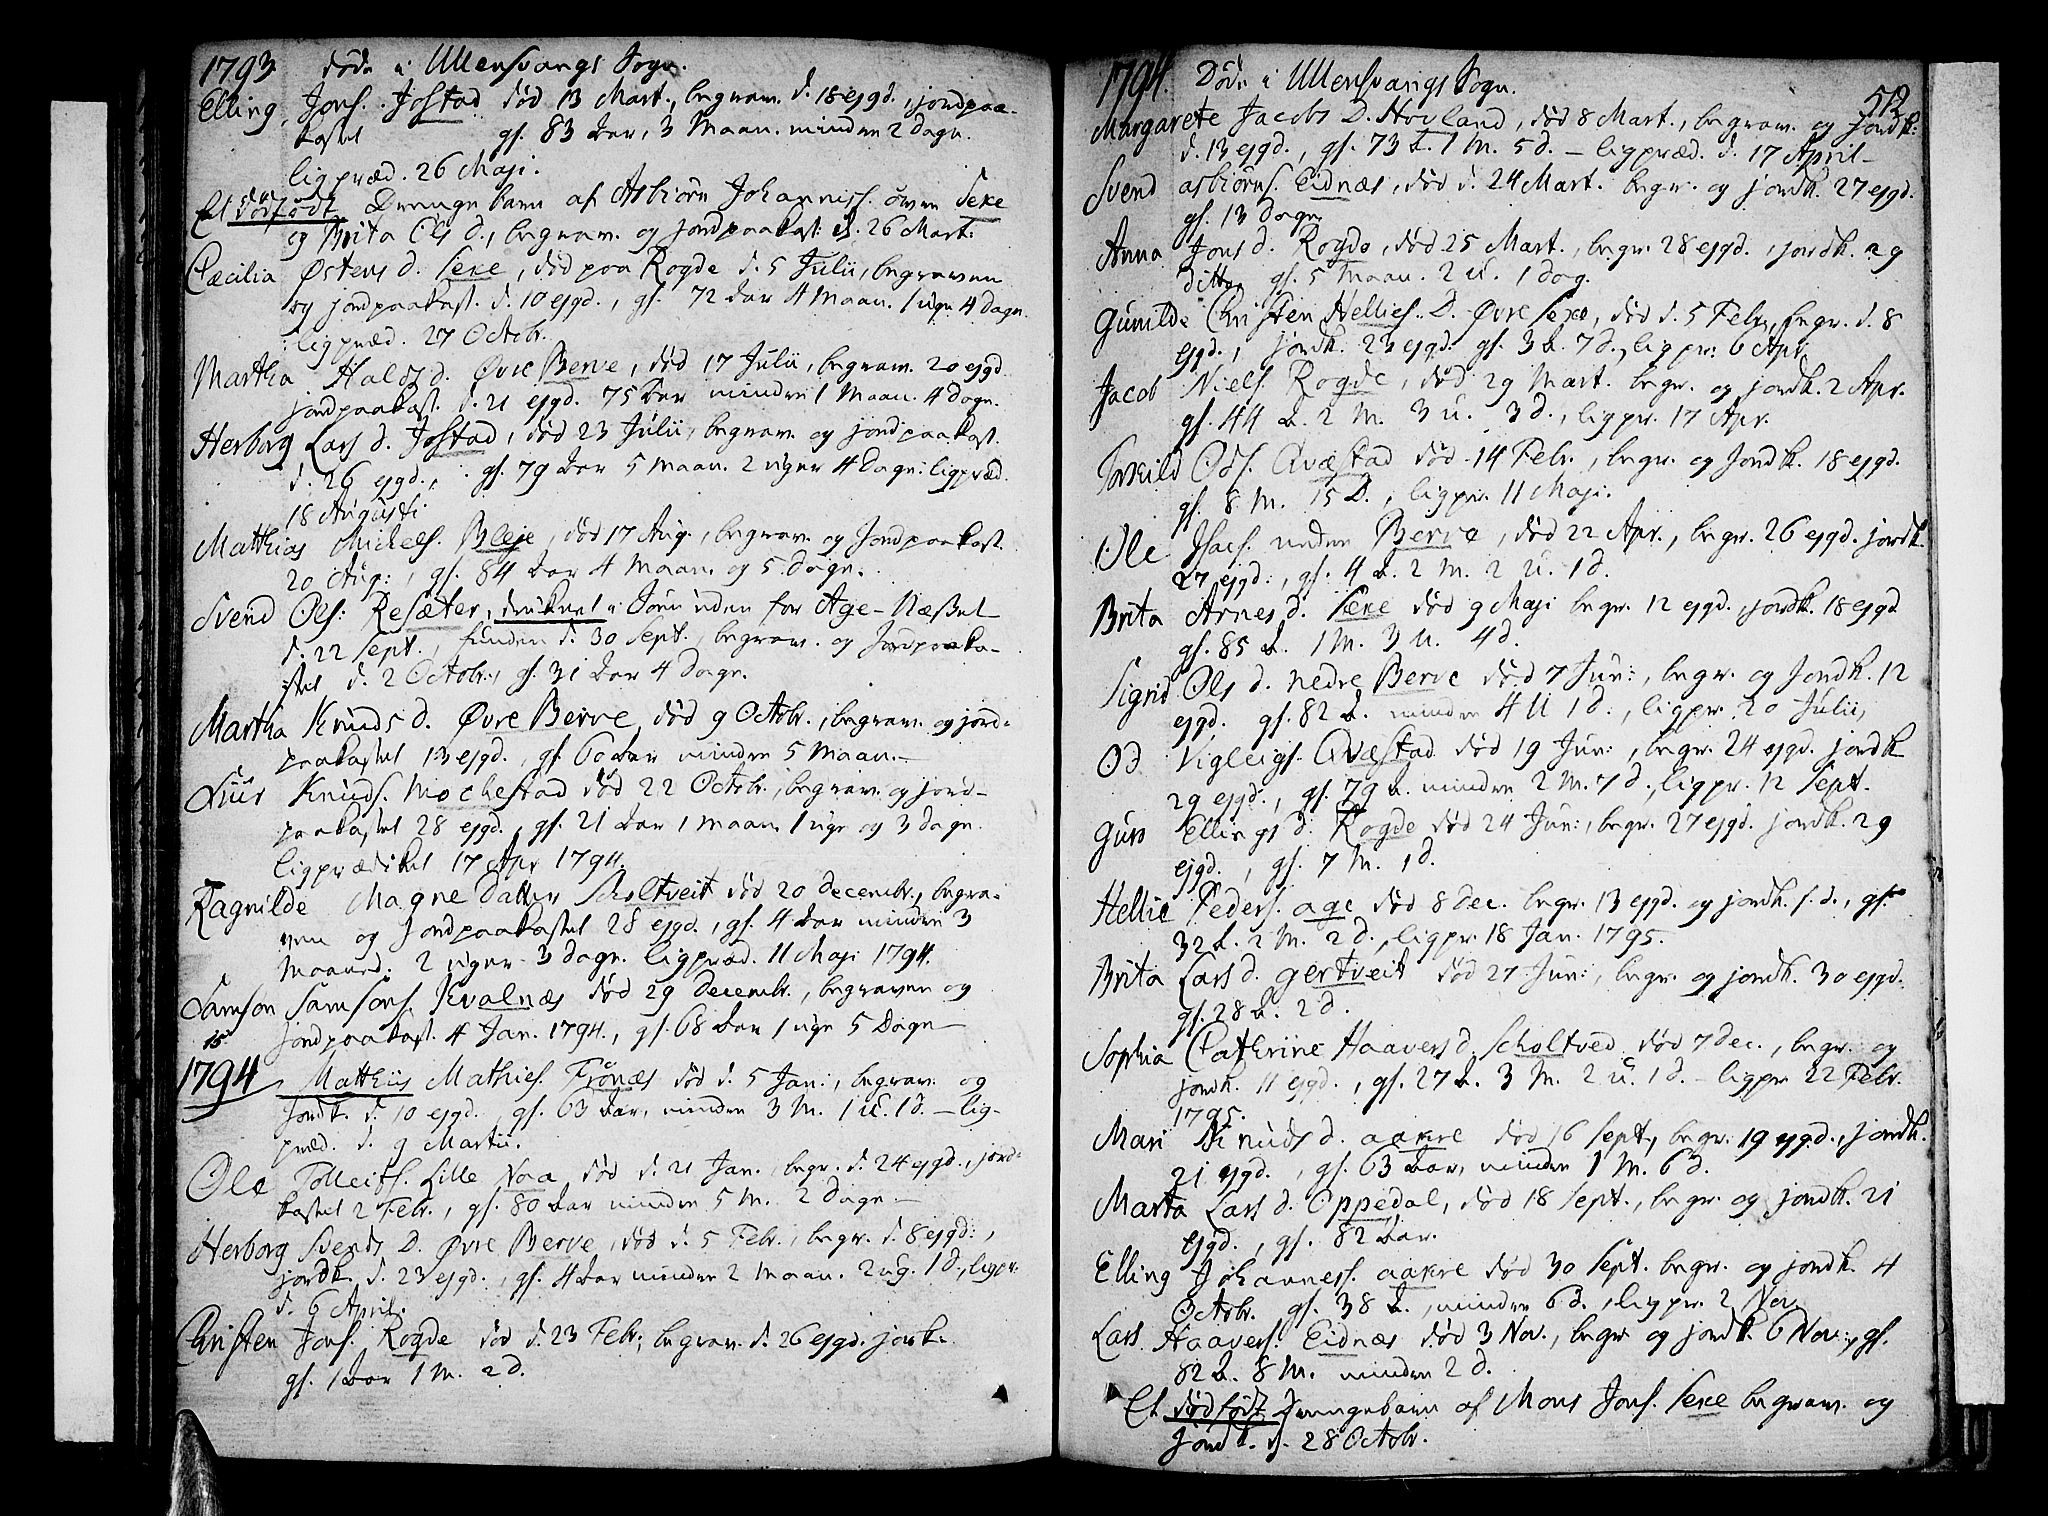 1793. døde i Ullensvangs Sogn.
Elling Jons. Jostad død 13 Mart., begrav. d. 18 ejgd., jordpaa-
kastet gl. 83 Aar, 3 Maan. minder 2 Dage.
ligpræd. 26 Maji.
Et dødfødt Drengebarn af Asbiørn Johanniss. øvre Sexe
og Brita Ols d., begrav. og jordpaakast. d. 26 Mart:
Cæcilia Østens d. Sexe, død paa Rogde d. 5 Julii, begraven
og jordpaakast. d. 10 ejgd., gl. 72 Aar 4 Maan. 1 uge 4 Dage.
ligpræd. 27 Octobr.
Martha Halds d. Øvre Berve, død 17 Julii, begrav. 20 ejgd.
jordpaakast. d. 21 ejgd. 75 Aar minder 1 Maan. 4 Dage.
Herborg Lars d. Jostad, død 23 Julii, begrav. og jordpaakast.
d. 26 ejgd., gl. 79 Aar 5 Maan. 2 uger 4 Dage: ligpræd.
18 Augusti
Matthias Michels. Bleje, død 17 Aug., begrav. og Jordpaakast.
20 Aug:, gl. 84 Aar 4 Maan. og 5 Dage.
Svend Ols: Resæter, druknet i Søen uden for Age-Næsset
d. 22 Sept., funden d. 30 Sept., begrav. og Jordpaaka-
stet d. 2 Octobr., gl. 31 Aar 4 Dage.
Martha Knuds d. Øvre Berve død 9 Octobr., begrav. og jord-
paakastet 13 ejgd., gl. 60 Aar minder 5 Maan.
Siur Knuds. Mochestad død 22 Octobr., begrav. og jord-
paakastet 28 ejgd., gl. 21 Aar 1 Maan. 1 uge og 3 Dage.
ligprædiket 17 Apr 1794.
Ragnilde Magne Datter Scholtveit død 20 Decembr., begra-
ven og Jordpaakastet 28 ejgd., gl. 4 Aar minder 3
Maaned. 2 uger 3 Dage. ligpræd. 11 Maji 1794.
Samson Samsons. Kvalnæs død 29 Decembr., begraven og
15 jordpaakast. 4 Jan. 1794., gl. 68 Aar 1 uge 5 Dage
1794 Matthiis Mathies. Frønæs død d. 5 Jan:, begrav. og
Jordk. d. 10 ejgd., gl. 63 Aar, minder 3 M. 1 U. 1 d. - lig-
præd. d. 9 Martii.
Ole Tolleifs. Lille Naa død d. 21 Jan., begr. d. 24 ejgd., jord-
kastet 2 Febr., gl. 80 Aar minder 5 M. 2 Dage
Herborg Svends D. Øvre Berve, død d. 5 Febr., begr. d. 8 ejgd:,
jordk. d. 23 ejgd., gl. 4 Aar minder 2 Maan. 2 ug. 1 d., ligpr.
d. 6 April.
Christen Jons. Rogde død d. 23 Febr., begrav. d. 26 ejgd. jordk.
gl. 1 Aar 1 M. 2 d.
1794. Døde i Ullensvangs Sogn.
512
Margarete Jacobs D. Hovland, død 8 Mart., begrav. og Jordk:
d. 13 ejgd., gl. 73 A. 1 M. 5 d. - ligpræd. d. 17 April
Svend asbiørns. Eidnæs, død d. 24 Mart. begr. og jordk. 27 ejgd.
gl. 13 Dage
Anna Jons d. Rogde, død 25 Mart., begr. 28 ejgd., jordk. 29
ditto, gl. 5 Maan. 2 U. 1 dag.
Gunilde Christen Hellies. D. Øvre Sexe, død d. 5 Febr, begr. d. 8
ejgd., jordk. 23 ejgd. gl. 3 A. 7 d., ligpr: 6 Apr.
Jacob Niels. Rogde, død 29 Mart. begr. og jordk. 2 Apr.
gl. 44 A. 2 M. 3 U. 3 d., ligpr. 17 Apr.
Torkild Ods. Qvæstad død 14 Febr., begr. og Jordk. 18 ejgd.
gl. 8 M. 15 D., ligpr. 11 Maji.
Ole Isacs. nedre Berve, død 22 Apr., begr. 26 ejgd. jordk.
27 ejgd:, gl. 4 A. 2 M. 2 U. 1 d.
Brita Arnes d. Sexe død 9 Maji begr. 12 ejgd., jordk. 18 ejgd
gl. 85 A. 1 M. 3 U. 4 d.
Sigrid Ols d. nedre Berve død 7 Jun:, begr. og Jordk. 12
ejgd. gl. 82 A. minder 4 U 1 d., ligpr. 20 Julii,
Od Vigleigs. Qvæstad død 19 Jun:, begr. 24 ejgd. jordk
29 ejgd., gl. 79 A. minder 2 M. 7 d., ligpr. 12 Sept.
Guro Ellings d. Rogde død 24 Jun:, begr. 27 ejgd. jordk. 29
ejgd., gl. 7 M. 1 d.
Hellie Peders. age død 8 Dec. begr. 13 ejgd. og jordk. s. d., gl.
32 A. 2 M. 2 d., ligpr. 18 Jan. 1795.
Brita Lars d. Gertveit død 27 Jun:, begr. og jordk. 30 ejgd.
gl. 28 A. 2 d.
Sophia Cathrine Haavers d. Scholtved død 7 Dec., begr. og
jordk. 11 ejgd., gl. 27 A. 3 M. 2 U. 1 d. - ligpr 22 Febr.
1795.
Mari Knuds d. aakre død 16 Sept., begr. 19 ejgd., jordk.
21 ejgd., gl. 63 Aar, minder 1 M. 6 d.
Marta Lars d. Oppedal, død 18 Sept., begr. og jordk. 21
ejgd., gl. 82 Aar.
Elling Johanness. aakre død 30 Sept. begr. og jordk. 4
Octobr. gl. 38 A., minder 6 d., ligpr. 2 Nov.
Lars Haavers. Eidnæs død 3 Nov., begr og jordk. 6 Nov:, gl.
82 A. 8 M. minder 2 d.
Et dødfødt Drengebarn af Mons Jons. Sexe begrav. og
Jordk. d. 28 Octobr.